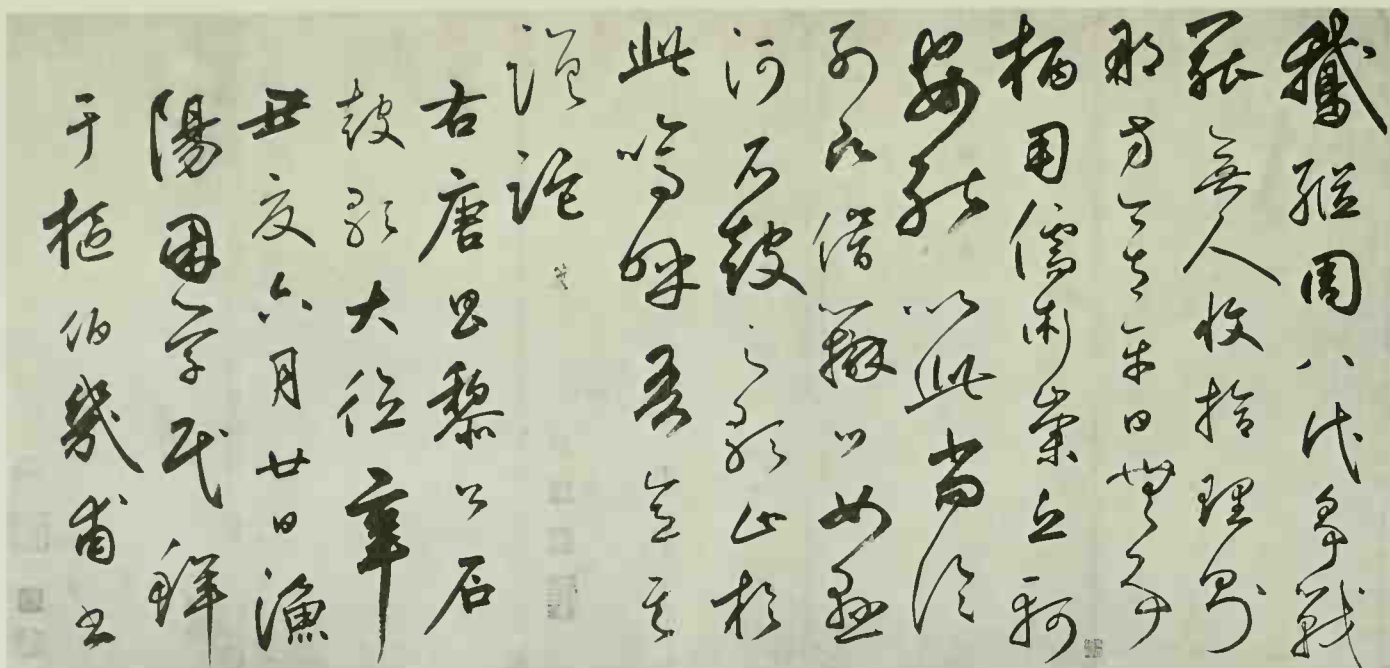 鵝繼周八代爭戰
罷無人收拾理則
那方今太平日無事
柄用儒術崇丘軻
安能以此尚論
列願借辯口如懸
河石鼓之歌止於
此嗚呼吾意其
蹉跎
右唐昌黎公石
鼓歌大德辛
丑夏六月廿日漁
陽困學民鮮
于樞伯幾甫書